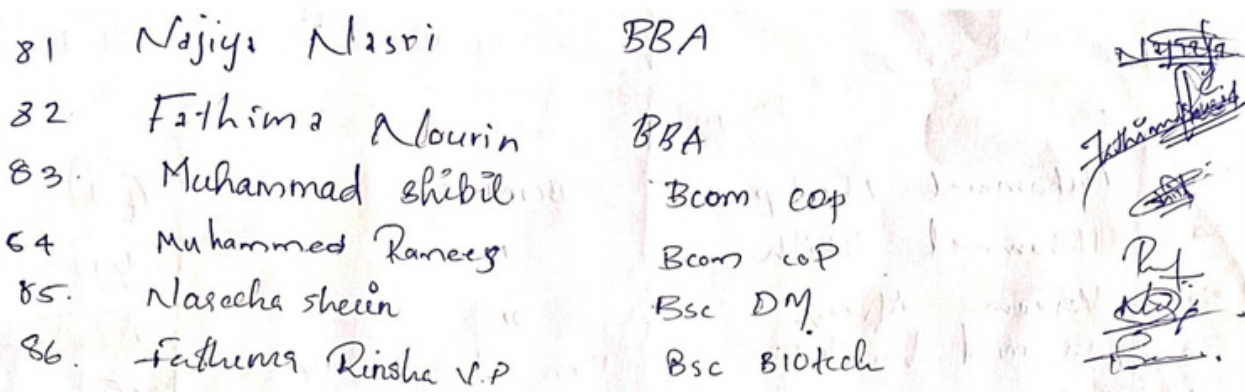 81 Najiya Nasri BBA Najiya
82 Fathima Nourin BBA Fathima Nourin
83. Muhammad shibil Bcom cop
64 Muhammed Rameez Bcom coP
85. Naseeha sherin Bsc DM
86. Fathima Rinsha V.P Bsc BIOtech